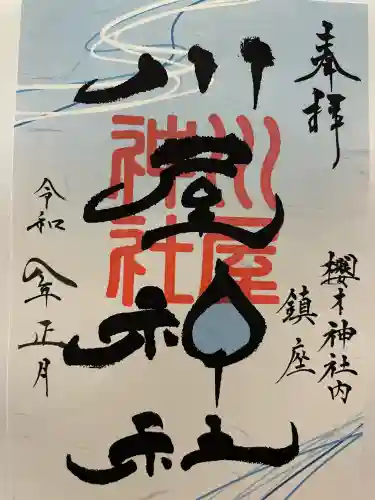 奉拝
川屋神社
川屋
神社
櫻木神社内
鎮座
令和八年正月